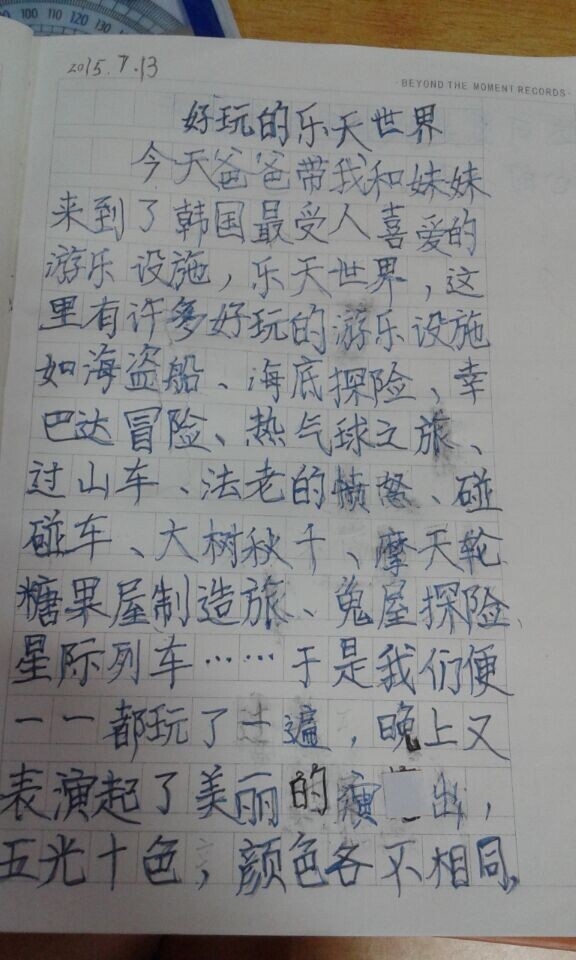 100 110 120 130
2015.7.13
·BEYOND THE MOMENT RECORDS·
好玩的乐天世界
今天爸爸带我和妹妹
来到了韩国最受人喜爱的
游乐设施，乐天世界，这
里有许多好玩的游乐设施
如海盗船、海底探险、幸
巴达冒险、热气球之旅、
过山车、法老的愤怒、碰
碰车、大树秋千、摩天轮
糖果屋制造旅、兔屋探险、
星际列车……于是我们便
一一都玩了一遍，晚上又
表演起了美丽的演出，
五光十色，颜色各不相同，